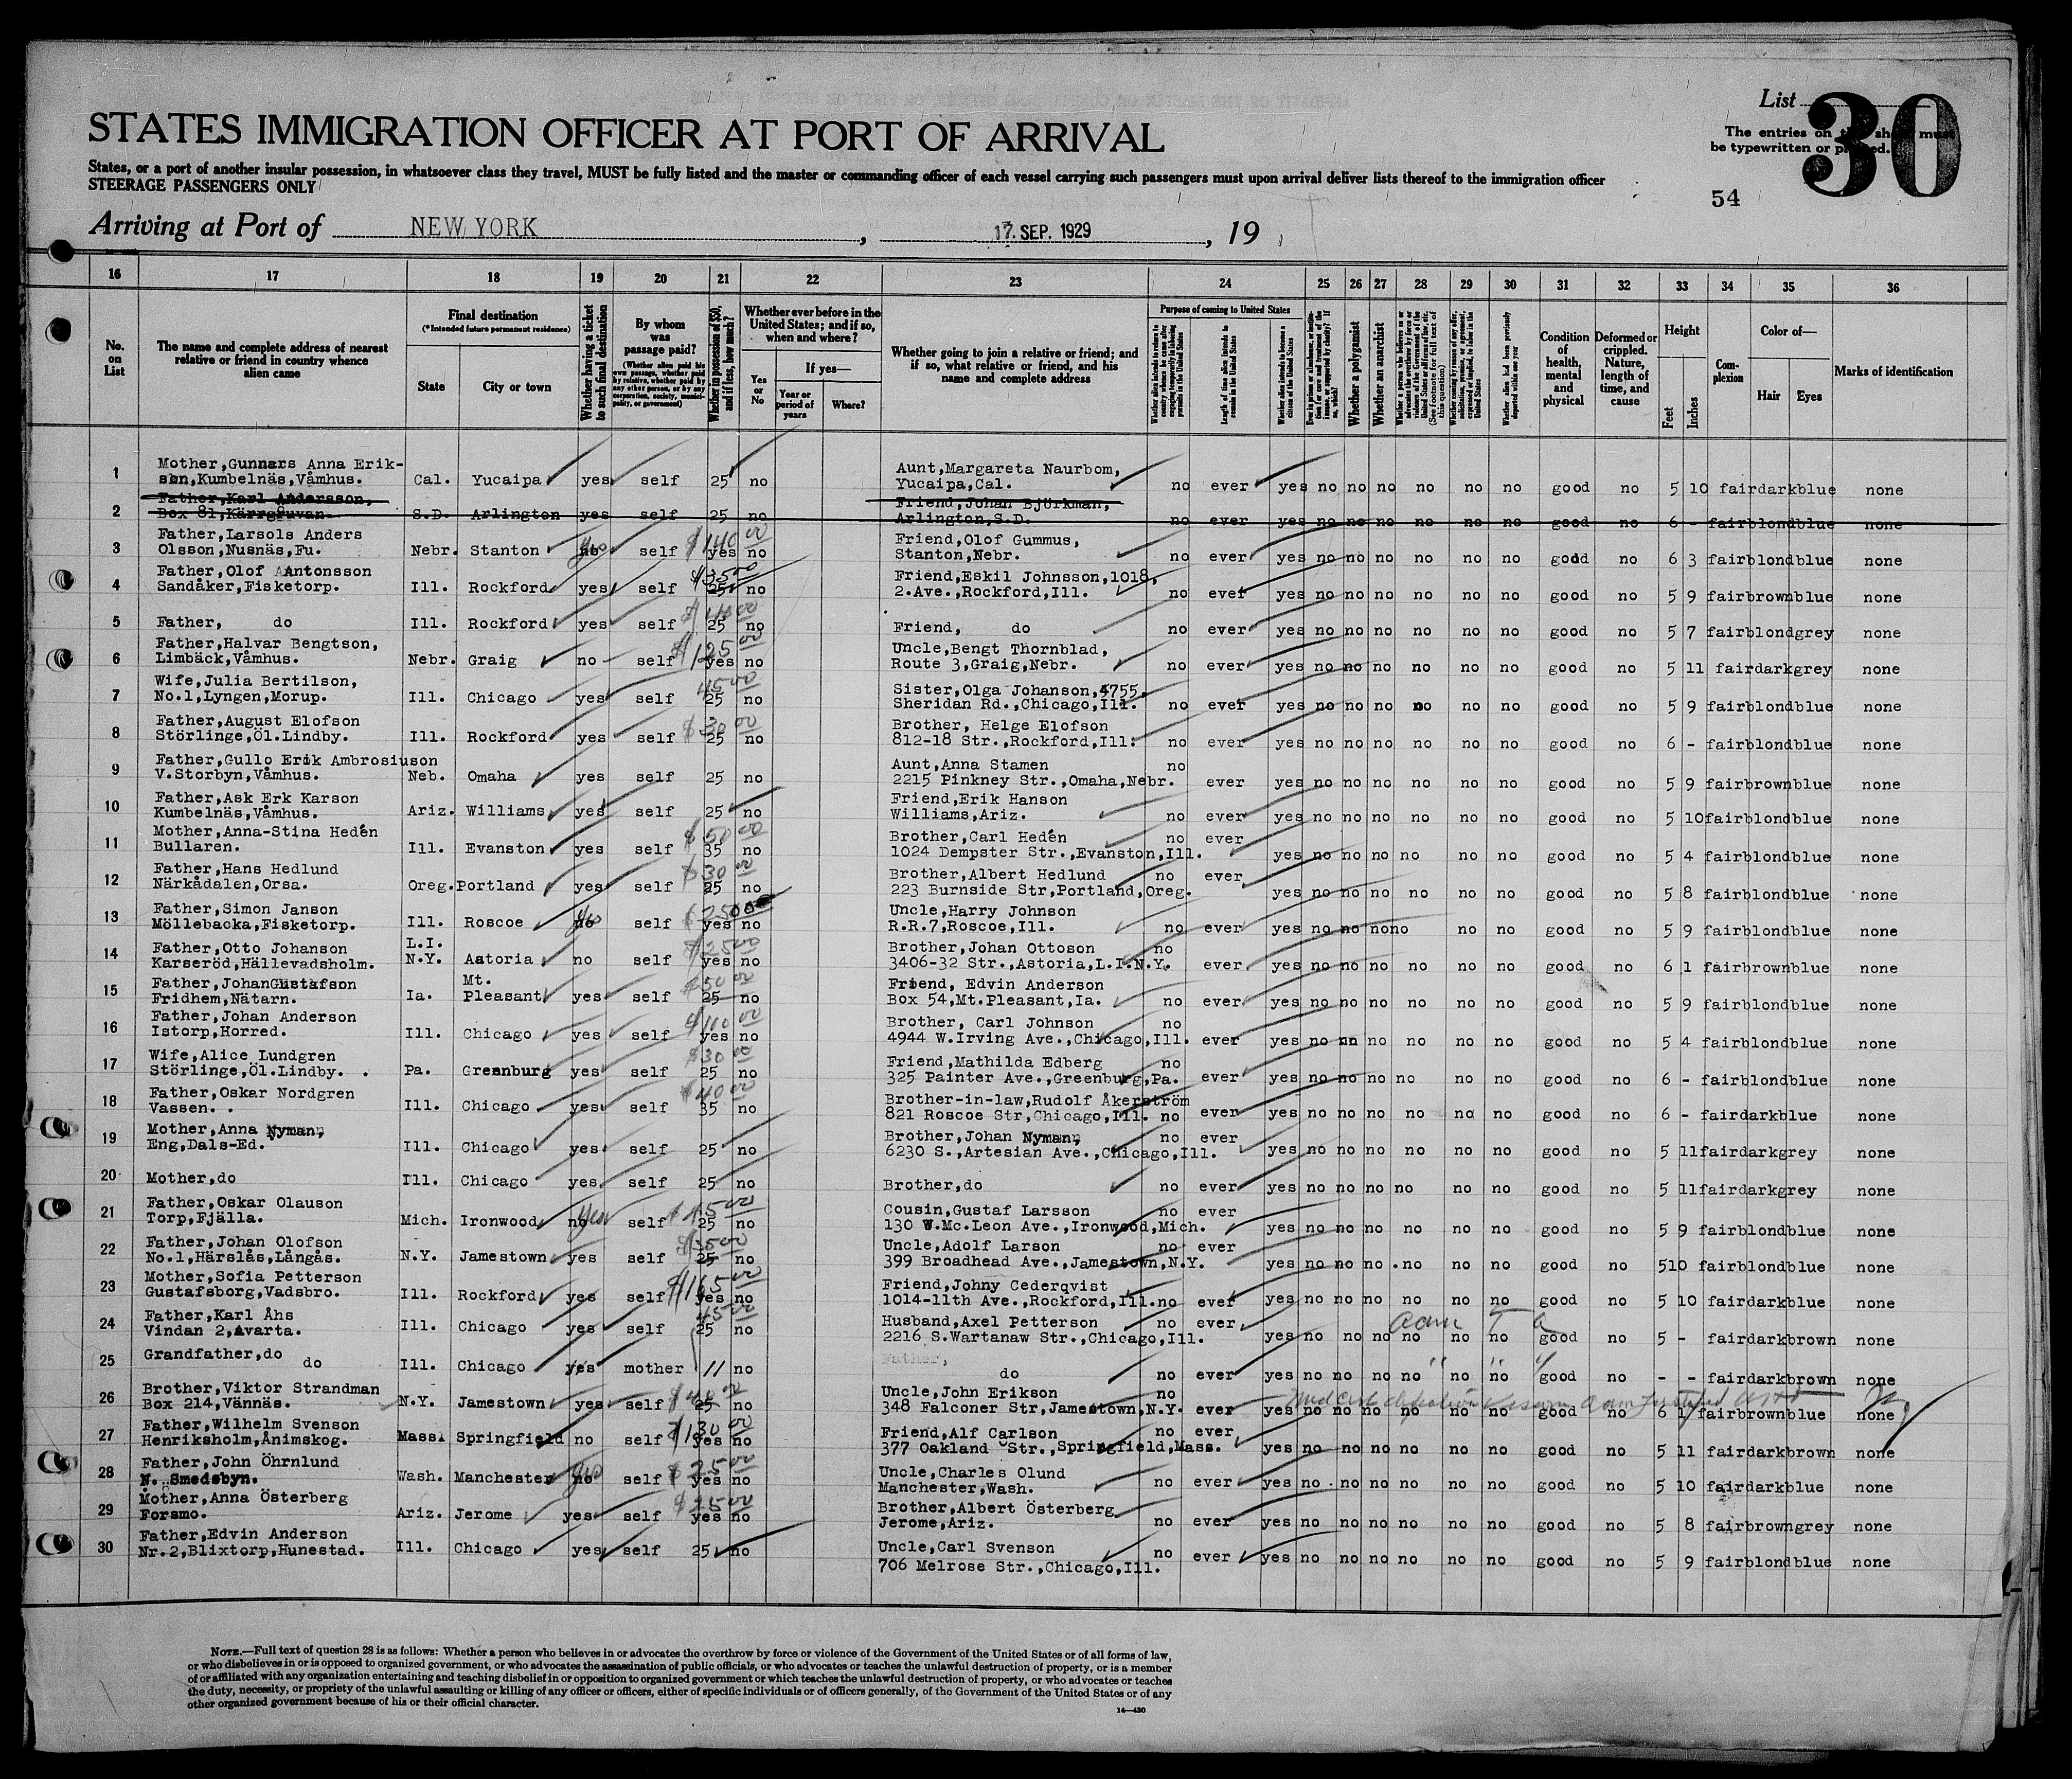 List
30
The entries on this sheet must
be typewritten or printed.
54
STATES IMMIGRATION OFFICER AT PORT OF ARRIVAL
States, or a port of another insular possession, in whatsoever class they travel, MUST be fully listed and the master or commanding officer of each vessel carrying such passengers must upon arrival deliver lists thereof to the immigration officer
STEERAGE PASSENGERS ONLY
Arriving at Port of NEW YORK, 17. SEP. 1929, 19
16 17 18 19 20 21 22 23 24 25 26 27 28 29 30 31 32 33 34 35 36
No. on List
The name and complete address of nearest relative or friend in country whence alien came
Final destination
(*Intended future permanent residence)
State
City or town
Whether having a ticket to such final destination
By whom was passage paid?
(Whether alien paid his own passage, whether paid by relative, whether paid by any other person, or by any corporation, society, municipality, or government)
Whether in possession of $50, and if less, how much?
Whether ever before in the United States; and if so, when and where?
Yes or No
If yes—
Year or period of years
Where?
Whether going to join a relative or friend; and if so, what relative or friend, and his name and complete address
Purpose of coming to United States
Length of time alien intends to remain in the United States
Whether alien intends to become a citizen of the United States
Whether a polygamist
Whether an anarchist
Whether alien had been previously deported within one year
Condition of health, mental and physical
Deformed or crippled. Nature, length of time, and cause
Height
Feet
Inches
Complexion
Color of—
Hair
Eyes
Marks of identification
1 Mother,Gunnars Anna Erik-
son,Kumbelnäs,Våmhus. Cal. Yucaipa yes self 25 no Aunt,Margareta Naurbom,
Yucaipa,Cal. no ever yes no no no no no no good no 5 10 fair dark blue none
2 Father,Karl Andersson,
Box 81,Kärrgruvan. S.D. Arlington yes self 25 no Friend,Johan Björkman,
Arlington,S.D. no ever yes no no no no no no good no 6 - fair blond blue none
3 Father,Larsols Anders
Olsson,Nusnäs,Fu. Nebr. Stanton no yes self $140 00 yes no Friend,Olof Gummus,
Stanton,Nebr. no ever yes no no no no no no good no 6 3 fair blond blue none
4 Father,Olof Antonsson
Sandåker,Fisketorp. Ill. Rockford yes self $35 00 25 no Friend,Eskil Johnsson,1018,
2.Ave.,Rockford,Ill. no ever yes no no no no no no good no 5 9 fair brown blue none
5 Father, do Ill. Rockford yes self 25 no Friend, do no ever yes no no no no no no good no 5 7 fair blond grey none
6 Father,Halvar Bengtson,
Limbäck,Våmhus. Nebr. Graig no self $125 00 yes no Uncle,Bengt Thornblad,
Route 3,Graig,Nebr. no ever yes no no no no no no good no 5 11 fair dark grey none
7 Wife,Julia Bertilson,
No.1,Lyngen,Morup. Ill. Chicago yes self 45 00 25 no Sister,Olga Johanson,4755,
Sheridan Rd.,Chicago,Ill. no ever yes no no no no no no good no 5 9 fair blond blue none
8 Father,August Elofson
Störlinge,Öl.Lindby. Ill. Rockford yes self $30 00 25 no Brother, Helge Elofson
812-18 Str.,Rockford,Ill. no ever yes no no no no no no good no 6 - fair blond blue none
9 Father,Gullo Erik Ambrosiuson
V.Storbyn,Våmhus. Neb. Omaha yes self 25 no Aunt,Anna Stamen no
2215 Pinkney Str.,Omaha,Nebr. ever yes no no no no no no good no 5 9 fair brown blue none
10 Father,Ask Erk Karson
Kumbelnäs,Våmhus. Ariz. Williams yes self 25 no Friend,Erik Hanson
Williams,Ariz. no ever yes no no no no no no good no 5 10 fair blond blue none
11 Mother,Anna-Stina Hedén
Bullaren. Ill. Evanston yes self $50 00 35 no Brother,Carl Hedén no ever
1024 Dempster Str.,Evanston,Ill. yes no no no no no no good no 5 4 fair blond blue none
12 Father,Hans Hedlund
Närkådalen,Orsa. Oreg. Portland yes self $30 00 25 no Brother,Albert Hedlund no ever
223 Burnside Str,Portland,Oreg. yes no no no no no no good no 5 8 fair blond blue none
13 Father,Simon Janson
Möllebacka,Fisketorp. Ill. Roscoe no yes self yes no Uncle,Harry Johnson
R.R.7,Roscoe,Ill. no ever yes no no no no no no good no 5 9 fair blond blue none
14 Father,Otto Johanson
Karseröd,Hällevadsholm. L.I. N.Y. Astoria no self yes no Brother,Johan Ottoson no
3406-32 Str.,Astoria,L.I.N.Y. ever yes no no no no no no good no 6 1 fair brown blue none
15 Father,Johan Gustafson
Fridhem,Nätarn. Ia. Mt. Pleasant yes self $50 00 25 no Friend, Edvin Anderson
Box 54,Mt.Pleasant,Ia. no ever yes no no no no no no good no 5 9 fair blond blue none
16 Father,Johan Anderson
Istorp,Horred. Ill. Chicago yes self $100 00 yes no Brother, Carl Johnson no
4944 W.Irving Ave.,Chicago,Ill. ever yes no nn no no no no good no 5 4 fair blond blue none
17 Wife,Alice Lundgren
Störlinge,Öl.Lindby. Pa. Greenburg yes self $30 00 25 no Friend,Mathilda Edberg no
325 Painter Ave.,Greenburg,Pa. ever yes no no no no no no good no 6 - fair blond blue none
18 Father,Oskar Nordgren
Vassen. Ill. Chicago yes self $40 00 35 no Brother-in-law,Rudolf Åkerström
821 Roscoe Str,Chicago,Ill. no ever yes no no no no no no good no 6 - fair dark blue none
19 Mother,Anna Nyman,
Eng,Dals-Ed. Ill. Chicago yes self 25 no Brother,Johan Nyman, no ever
6230 S.,Artesian Ave.,Chicago,Ill. yes no no no no no no good no 5 11 fair dark grey none
20 Mother,do Ill. Chicago yes self 25 no Brother,do no ever yes no no no no no no good no 5 11 fair dark grey none
21 Father,Oskar Olauson
Torp,Fjälla. Mich. Ironwood no yes self $45 00 25 no Cousin,Gustaf Larsson no ever
130 W.Mc.Leon Ave.,Ironwood,Mich. yes no no no no no no good no 5 9 fair blond blue none
22 Father,Johan Olofson
No.1,Härslås,Långås. N.Y. Jamestown yes self 25 no Uncle,Adolf Larson no ever
399 Broadhead Ave.,Jamestown,N.Y. yes no no no no no no good no 5 10 fair blond blue none
23 Mother,Sofia Petterson
Gustafsborg,Vadsbro. Ill. Rockford yes self $165 00 yes no Friend,Johny Cederqvist
1014-11th Ave.,Rockford,Ill. no ever yes no no no no no no good no 5 10 fair dark blue none
24 Father,Karl Åhs
Vindan 2,Avarta. Ill. Chicago yes self 45 00 25 no Husband,Axel Petterson no ever
2216 S.Wartanaw Str.,Chicago,Ill. yes no no no no no no good no 5 - fair dark brown none
25 Grandfather,do
do Ill. Chicago yes mother 11 no Father,
do no ever yes no no no no no no good no - - fair dark brown none
26 Brother,Viktor Strandman
Box 214,Vännäs. N.Y. Jamestown yes self $40 00 25 no Uncle,John Erikson no
348 Falconer Str,Jamestown,N.Y. ever yes no no no no no no good no 6 1 fair brown blue none
27 Father,Wilhelm Svenson
Henriksholm,Ånimskog. Mass. Springfield no self $130 00 yes no Friend,Alf Carlson no ever
377 Oakland Str.,Springfield,Mass. yes no no no no no no good no 5 11 fair dark brown none
28 Father,John Öhrnlund
N. Smedsbyn. Wash. Manchester no yes self yes no Uncle,Charles Olund
Manchester,Wash. no ever yes no no no no no no good no 5 10 fair dark blue none
29 Mother,Anna Österberg
Forsmo. Ariz. Jerome yes self yes no Brother,Albert Österberg
Jerome,Ariz. no ever yes no no no no no no good no 5 8 fair brown grey none
30 Father,Edvin Anderson
Nr.2,Blixtorp,Hunestad. Ill. Chicago yes self 25 no Uncle,Carl Svenson
706 Melrose Str.,Chicago,Ill. no ever yes no no no no no no good no 5 9 fair blond blue none
NOTE.—Full text of question 28 is as follows: Whether a person who believes in or advocates the overthrow by force or violence of the Government of the United States or of all forms of law,
or who disbelieves in or is opposed to organized government, or who advocates the assassination of public officials, or who advocates or teaches the unlawful destruction of property, or is a member
of or affiliated with any organization entertaining and teaching disbelief in or opposition to organized government or which teaches the unlawful destruction of property, or who advocates or teaches
the duty, necessity, or propriety of the unlawful assaulting or killing of any officer or officers, either of specific individuals or of officers generally, of the Government of the United States or of any
other organized government because of his or their official character.
14—430